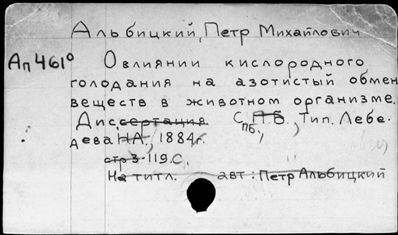 Альбицкий, Петр Михайлович
Ап461⁰ О влиянии кислородного
голодания на азотистый обмен
веществ в животном организме.
Диссертация. С.П.Б., Тип. Лебе-
пб.,
дева Н.А., 1884г.
стр 3 119 с.
На титл. авт: Петр Альбицкий